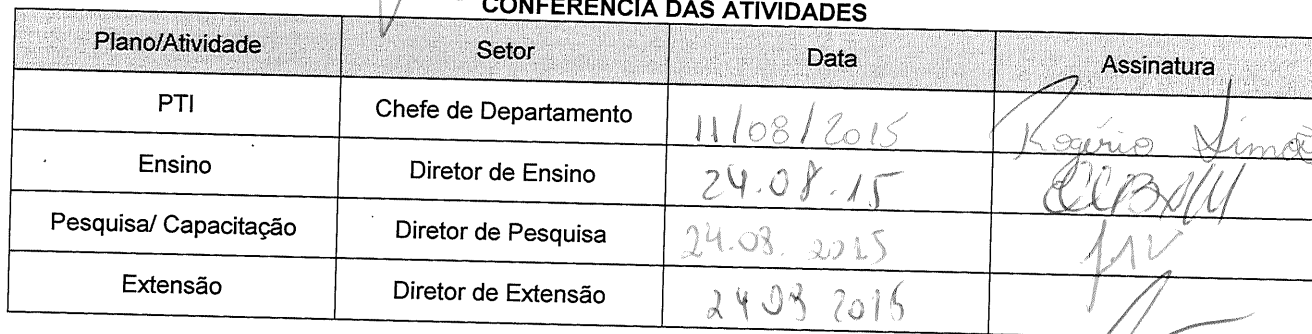 CONFERÊNCIA DAS ATIVIDADES
Plano/Atividade Setor Data Assinatura
PTI Chefe de Departamento 11/08/2015 Rogério Simõ
Ensino Diretor de Ensino 24.08.15
Pesquisa/ Capacitação Diretor de Pesquisa 24.08.2015
Extensão Diretor de Extensão